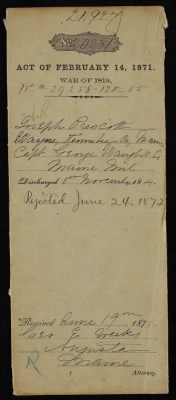 21.927
ACT OF FEBRUARY 14, 1871.
WAR OF 1812.
Wt # 29258-120-55
Joseph Prescott
Wayne, Co Maine
Capt. George
Maine Mil
Discharged 8 November, 1814.
Rejected June 24, 1872
Received June 19th 1871.
Geo E Weeks
Augusta
Maine
Attorney.
R